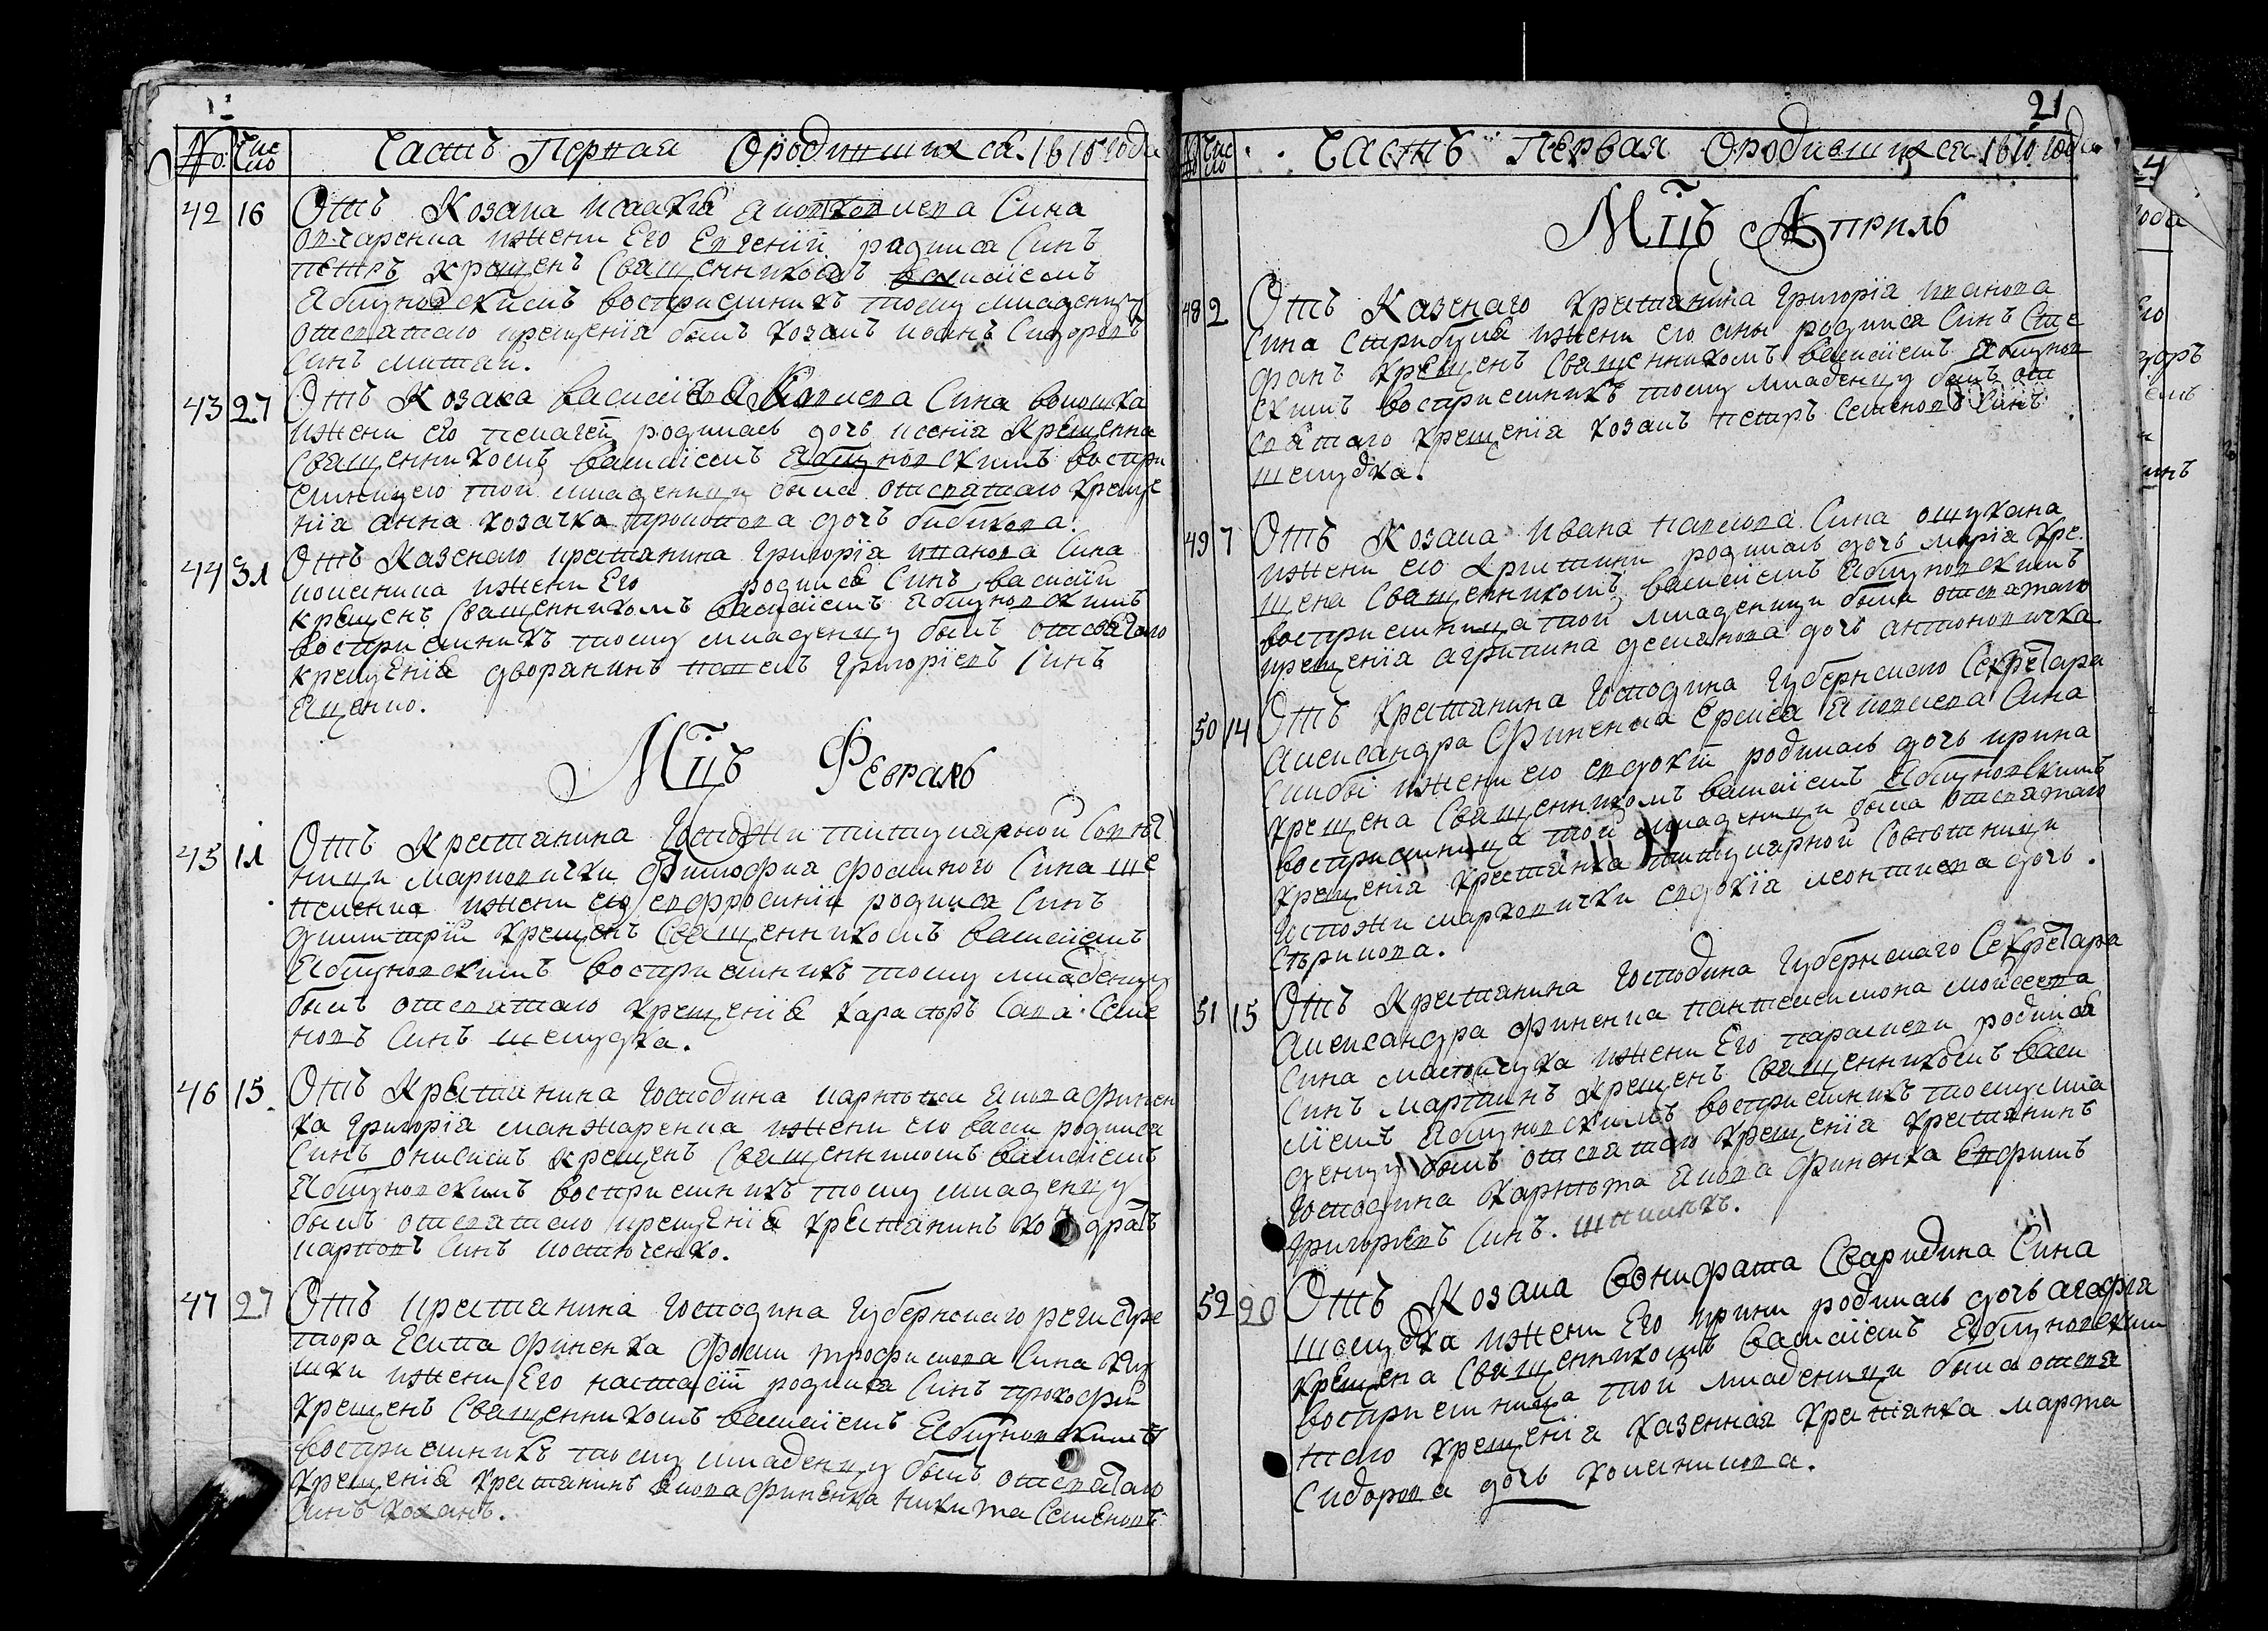 No. Число Часть Первая О родившихся. 1810 года
42 16 Отъ Козака Исаакія Яковлева Сина
Овчаренка и жени Его Евгеній родился Синъ
Петръ крещенъ Священникомъ Василіемъ
Яблуновскимъ восприемникъ тому младенцу
отсвятаго крещенія былъ козакъ Иванъ Сидоровъ
Синъ
43 27 Отъ Козака Василія Яковлева Сина Волошка
и жени его Пелагеи родилась дочь Ксенія Крещенна
Священникомъ Василіемъ Яблуновскимъ воспри
емницею той младеници была отсвятаго креще
нія Анна козачка дочь Бибикова.
44 31 Отъ Казеного крестянина Григорія Иванова Сина
и жени Его родился Синъ Василій
крещенъ Священникомъ Василіемъ Яблуновскимъ
восприемникъ тому младенцу былъ отсвятаго
крещенія дворянинъ Павелъ Григоріевъ Синъ
Яценко.
Мцъ Февраль
45 11 Отъ Крестянина Госпожи титулярной Совет
ници Марковички Филофия Фоминого Сина Ше
и жени его Евфросиніи родился Синъ
Димитрій крещенъ Священникомъ Василіемъ
Яблуновскимъ восприемникъ тому младенцу
былъ отсвятаго крещенія Сава Семе
новъ Синъ Шелудка.
46 15 Отъ Крестянина Господина Якова Финен
ка Григорія Манжаренка и жени его Васи родился
Синъ Онисимъ крещенъ Священникомъ Василіемъ
Яблуновскимъ восприемникъ тому младенцу
былъ отсвятаго крещенія крестянинъ Кондратъ
Карповъ Синъ Костюченко.
47 27 Отъ крестянина Господина Губернскаго регистра
тора Есипа Финенка Фоми Трофимова Сина
и жени Его Настасіи родился Синъ Прокофій
крещенъ Священникомъ Василіемъ Яблуновскимъ
восприемникъ тому младенцу былъ отсвятаго
крещенія крестянинъ Якова Финенка Никита Семеновъ
Синъ Коханъ.
21
No. Число Часть Первая О родившихся. 1810 года
Мцъ Априль
48 2 Отъ Казенаго Крестянина Григорія Иванова
Сина Стрибуля и жени его Аны родился Синъ Сте
фанъ крещенъ Священникомъ Василіемъ Яблунов
скимъ восприемникъ тому младенцу былъ от
святаго крещенія козакъ Петръ Семеновъ Синъ
Шелудка.
49 7 Отъ Козака Ивана Павлова Сина
и жени его Христини родилась дочь Марія кре
щена Священникомъ Василіемъ Яблуновскимъ
восприемница той младеници была отсвятаго
крещенія Агрипина Демянова дочь Антоновичка
50 14 Отъ Крестянина Господина Губернскаго Секретара
Александра Финенка Ермея Яковлева Сина
и жени его Евдокіи родилась дочь Ирина
крещена Священникомъ Василіемъ Яблуновскимъ
восприемница той младеници была отсвятаго
крещенія крестянка титулярной Советници
Госпожи Марковички Евдокія Леонтиева дочь

51 15 Отъ Крестянина Господина Губернскаго Секретара
Александра Финенка Пантелеимона Мойсеева
Сина и жени Его Параскеви родился
Синъ Мартинъ крещенъ Священникомъ Васи
ліемъ Яблуновскимъ восприемникъ тому мла
денцу былъ отсвятаго крещенія крестянинъ
Господина Якова Финенка Ефимъ
Григоріевъ Синъ.
52 20 Отъ Козака Вонифата Сваридина Сина
Шелудка и жени Его Ирини родилась дочь Агафія
крещена Священникомъ Василіемъ Яблуновским
восприемница той младеници была отсвя
таго крещенія казенная крестянка Марта
Сидорова дочь